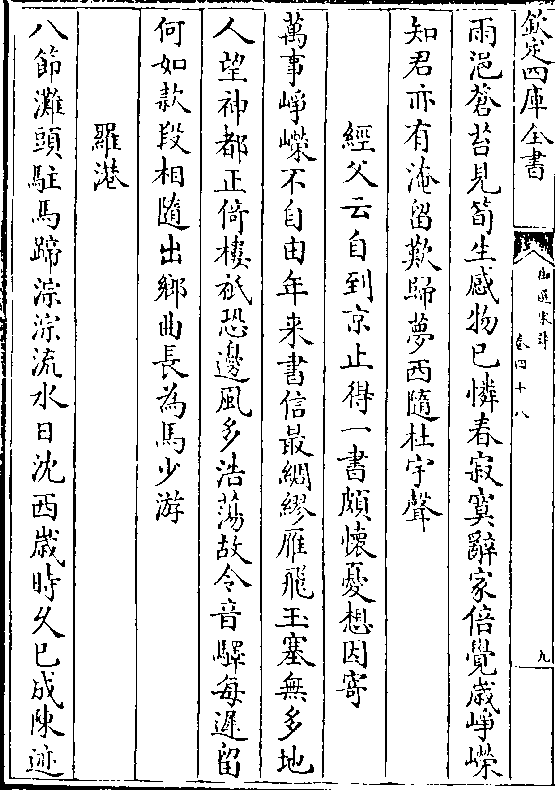 欽定四庫全書
御選宋詩
卷四十八
九
雨浥蒼苔見筍生感物已憐春寂寞辭家倍覺歲崢嶸
知君亦有淹留歎歸夢西隨杜宇聲
經父云自到京止得一書頗懷憂想因寄
萬事崢嶸不自由年来書信最綢繆雁飛玉塞無多地
人望神都正倚樓祇恐邊風多浩蕩故令音驛每遲留
何如款段相隨出鄉曲長為馬少游
羅港
八節灘頭駐馬蹄淙淙流水日沈西歲時久已成陳迹